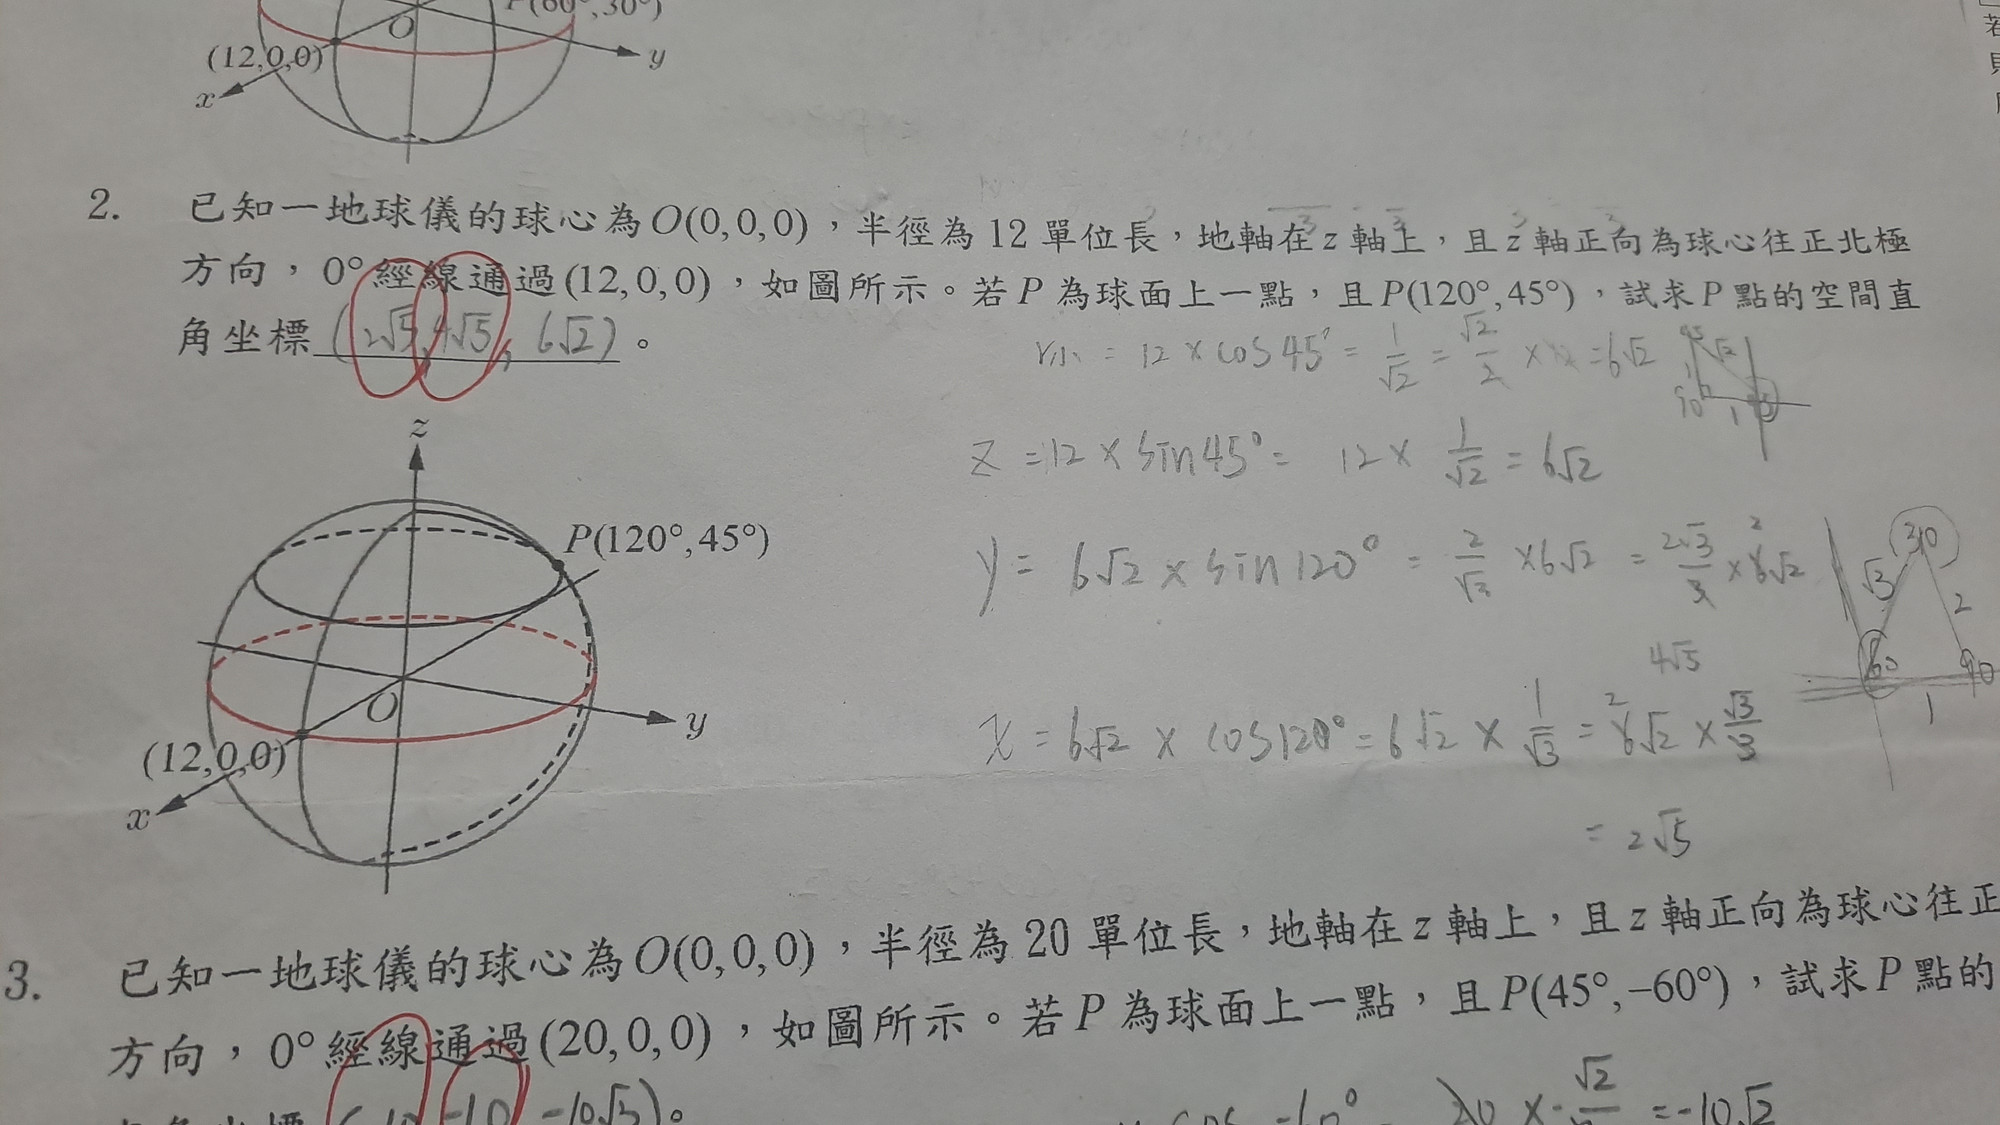 P(60°,30°)
O
(12,0,0)
y
x
2. 已知一地球儀的球心為O(0,0,0),半徑為12單位長,地軸在z軸上,且z軸正向為球心往正北極
方向,0°經線通過(12,0,0),如圖所示。若P為球面上一點,且P(120°,45°),試求P點的空間直
角坐標(2√5,4√5,6√2)。
r小 = 12×cos45° = 1/√2 = √2/2 × 12 = 6√2
45 √2
90 1
z = 12×sin45° = 12×1/√2 = 6√2
y = 6√2×sin120° = 2/√3 ×6√2 = 2√3/3 ×6√2
2
30
√3 2
60 90
1
4√5
x = 6√2 × cos120° = 6√2 × 1/√3 = 6√2 × √3/3
2
= 2√5
z
P(120°,45°)
O
y
(12,0,0)
x
3. 已知一地球儀的球心為O(0,0,0),半徑為20單位長,地軸在z軸上,且z軸正向為球心往正
方向,0°經線通過(20,0,0),如圖所示。若P為球面上一點,且P(45°,−60°),試求P點的
-10√3)。
cos -60° 20 × = -10√2